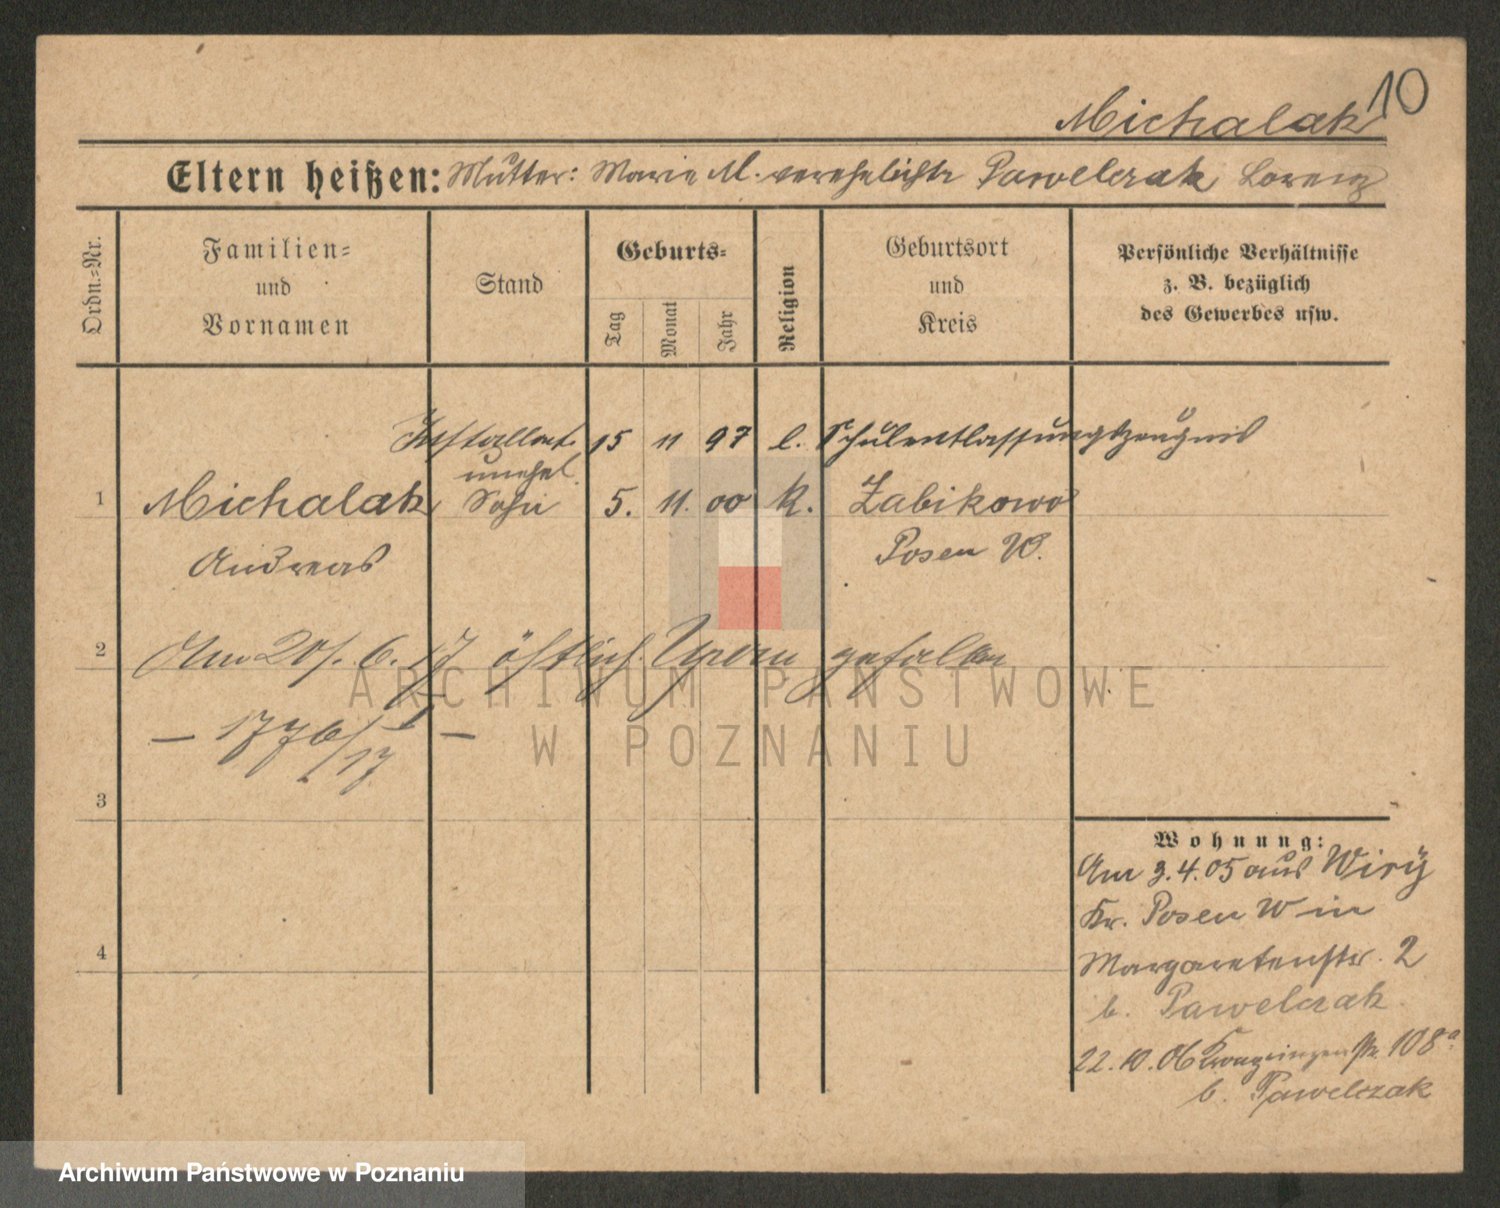 10
Michalak
Eltern heißen: Mutter: Marie M. verehelichte Pawelczak Lorenz
Ordn.=Nr.
Familien=
und
Vornamen
Stand
Geburts=
Tag
Monat
Jahr
Religion
Geburtsort
und
Kreis
Persönliche Verhältnisse
z. B. bezüglich
des Gewerbes usw.
Installat. 15 11 97 l. Schulentlassungszeugnis
unehel.
1 Michalak Sohn 5. 11. 00 k. Zabikowo
Andreas Posen W.
2 Am 20/. 6. 17 östlich Ypern gefallen
ARCHIWUM PAŃSTWOWE
W POZNANIU
— 1776/17 —
3
Wohnung:
Am 3.4.05 aus Wiry
Kr. Posen W in
4 Margaretenstr. 2
b. Pawelczak
22.10.06 Kronprinzenstr. 108a
b. Pawelczak
Archiwum Państwowe w Poznaniu